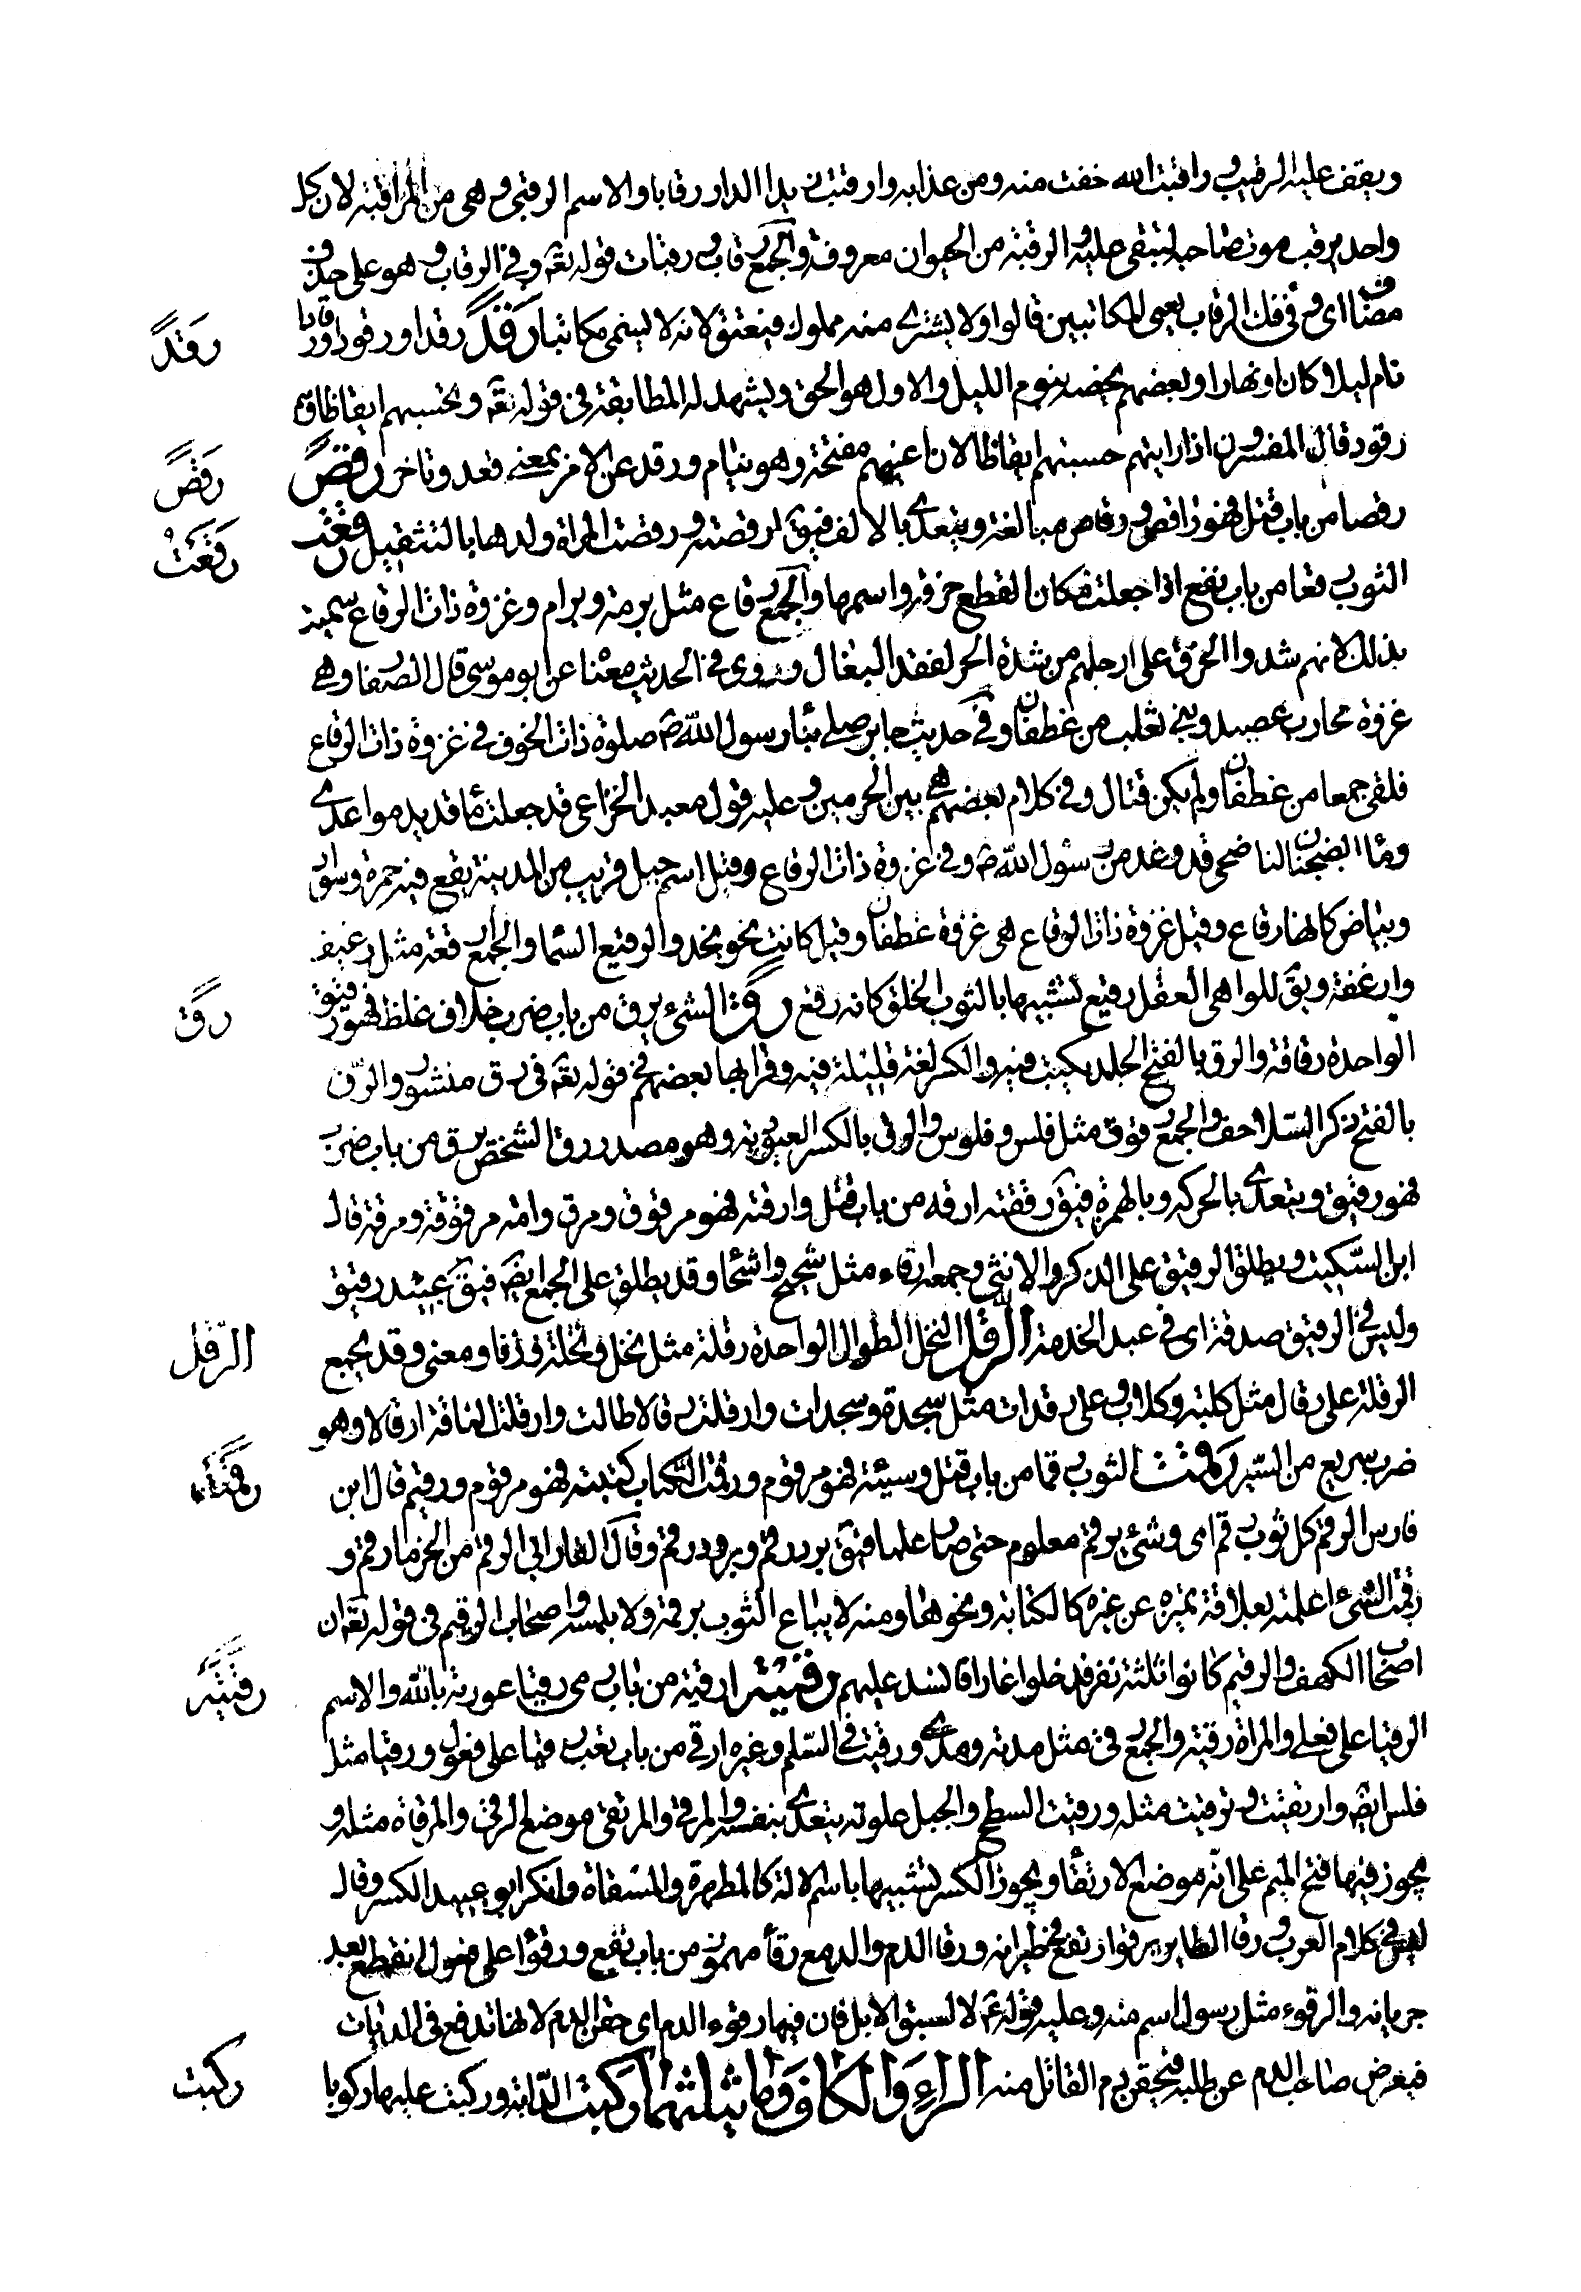 ويقف عليه الرقيب وراقبت الله خفت منه ومن عذابه وارقبت زيدا الدار رقابا والاسم الرقبى وهى من المراقبة لان كل
واحد يرقب موت صاحبه لتبقى عليه والرقبة من الحيوان معروفة والجمع رقاب ورقبات قوله تعه وفى الرقاب وهو على حذف
مضاف اى وفى فك الرقاب يعنى المكاتبين قالوا ولا يشترى منه مملوك فيعتق لانه لا يسمى مكاتبا رَقَدَ رقدا ورقودا ورقادا
نام ليلا كان او نهارا وبعضهم يخصه بنوم الليل والاول هو الحق ويشهد له المطابقة فى قوله تعه وتحسبهم ايقاظا وهم
رقود قال المفسرون اذا رايتهم حسبتهم ايقاظا لان اعينهم مفتحة وهو نيام ورقد عن الامر بمعنى قعد وتاخر رقص
رقصا من باب قتل فهو راقص ورقاص مبالغة ويتعدى بالالف فيق ارقصته ورقصت المراة ولدها بالتثقيل رقعت
الثوب رقعا من باب نفع اذا جعلت مكان القطع خرقة واسمها والجمع رقاع مثل برمة وبرام وغزوة ذات الرقاع سميت
بذلك لانهم شدوا الخرق على ارجلهم من شدة الحر لفقد النعال وروى فى الحديث معنا عن ابو موسى قال الصغا وهى
غزوة محارب خصفه وبنى ثعلب من غطفان وفى حديث جابر صلى بنا رسول الله ص صلوة ذات الخوف فى غزوة ذات الرقاع
فلقى جمعا من غطفان ولم يكن قتال وفى كلام بعضهم هى بين الحرمين وعليه قول معبد الخزاعى قد جعلت ماء قديد موعدى
وماء الضجنان لنا ضحى قد وعد من رسول الله ص وفى غزوة ذات الرقاع وقيل اسم جبل قريب من المدينة بقع فيه حمرة وسواد
وبياض كانها رقاع وقيل غزوة ذات الرقاع هى غزوة غطفان وقيل كانت نحو نجد والرقيع السما والجمع ارقعة مثل رغيف
وارغفة ويق للواهى العقل رقيع تشبيها بالثوب الخلق كانه رقع رقّ الشئ يرق من باب ضرب خلاف غلظ فهو رقيق
الواحدة رقاقة والرق بالفتح الجلد يكتب فيه والكسر لغة قليلة فيه وقرا بها بعضهم فى قوله تعه فى رق منشور والرق
بالفتح ذكر السلاحف والجمع رقوق مثل فلس وفلوس والرق بالكسر العبودية وهو مصدر رق الشخص يرق من باب ضرب
فهو رقيق ويتعدى بالحركة وبالهمزة فيق رققته ارقه من باب قتل وارقته فهو مرقوق ومرق وامه مرقوقة ومرقة قال
ابن السكيت ويطلق الرقيق على الذكر والانثى وجمعه ارقاء مثل شحيح واشحا وقد يطلق على الجمع ايضه فيق عبيد رقيق
وليس فى الرقيق صدقة اى فى عبد الخدمة الرقل النخل الطوال الواحدة رقلة مثل نخل ونخلة وزنا ومعنى وقد يجمع
الرقلة على رقال مثل كلبة وكلاب وعلى رقلات مثل سجدة وسجدات وارقلت رقالا طالت وارقلت الناقة ارقالا وهو
ضرب سريع من السير رقمت الثوب رقما من باب قتل وسيته فهو مرقوم ورقمت الكتاب كتبته فهو مرقوم ورقيم قال ابن
فارس الرقم كل ثوب رقم اى وشئ برقم معلوم حتى صار علما فيق برد رقم وبرود رقم وقال الفارابى الرقم من الخز ما رقم و
رقمت الشئ اعلمته بعلامة تميزه عن غيره كالكتابة ونحوها ومنه لا يباع الثوب برقمه ولا بلمسه واصحاب الرقيم فى قوله تعه ان
اصحاب الكهف والرقيم كانوا ثلثة نفر دخلوا غارا فانسد عليهم رقيته ارقيه من باب رمى رقيا عوذته بالله والاسم
الرقيا على فعلى والمراة رقية والجمع رقى مثل مدية ومدى ورقيت فى السلم وغيره ارقى من باب تعب رقيا على فعول ورقيا مثل
فلس ايضه وارتقيت وترقيت مثله ورقيت السطح والجبل علوته يتعدى بنفسه والمرقى والمرتقى موضع الرقى والمرقاة مثله و
يجوز فيها فتح الميم على انه موضع الارتقاء ويجوز الكسر تشبيها باسم الالة كالمطهرة والمسقاة وانكر ابو عبيد الكسر وقال
ليس فى كلام العرب ورقا الطاير يرقو ارتفع فى طيرانه ورقا الدم والدمع رقأ مهموز من باب نفع ورقوا على فعول انقطع بعد
جريانه والرقوء مثل رسول اسم منه وعليه قوله ع لا تسبوا الابل فان فيها رقوء الدم اى حقن الدم لانها تدفع فى الديات
فيعرض صاحب الدم عن طلبه فيحقن دم القاتل منه الراء والكاف وما يثلثهما ركبت الدابة وركبت عليها ركوبا
رَقَدَ
رَقَصَ
رَقَعْتُ
رق
الرّقل
رقمت
رقيته
ركبت